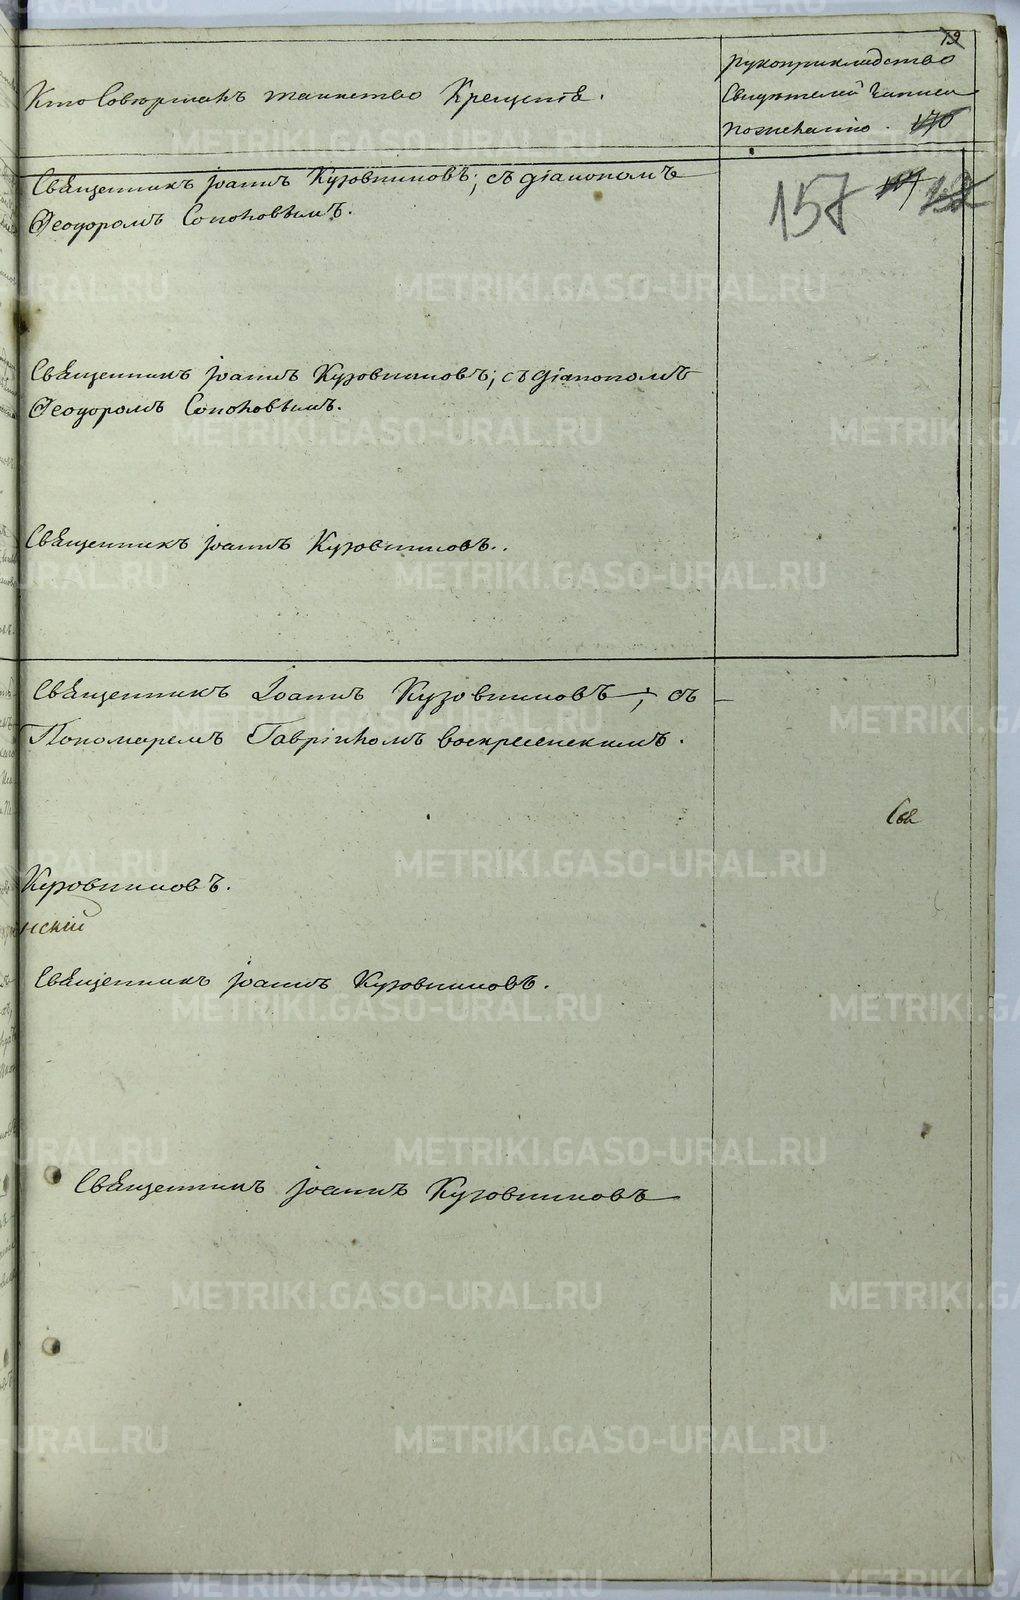 Кто Совершалъ таинство Крещенїя.
рукоприкладство
Свидѣтелей Записи
по желанію.
Священникъ Іоаннъ Кузовниковъ; съ діакономъ
Феодоромъ Соколовымъ.
157
Священникъ Іоаннъ Кузовниковъ; съ діакономъ
Феодоромъ Соколовымъ.
Священникъ Іоаннъ Кузовниковъ.
Священникъ Іоаннъ Кузовниковъ; съ
Пономаремъ Гавріиломъ Воскресенскимъ.
Кузовниковъ.
нскій
Священникъ Іоаннъ Кузовниковъ.
Священникъ Іоаннъ Кузовниковъ
METRIKI.GASO-URAL.RU